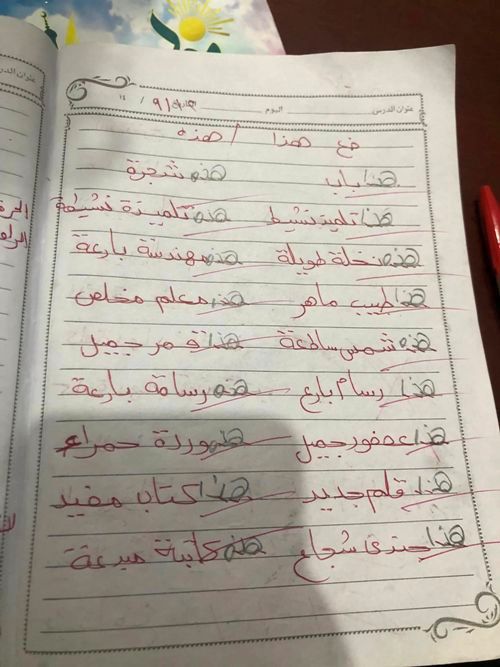 عنوان الدرس اليوم التاريخ ٩ / ١٤
ضع هذا / هذه
هذا باب هذه شجرة
هذا تلميذ نشيط هذه تلميذة نشيطة
هذه نخلة طويلة هذه مهندسة بارعة
هذا طبيب ماهر هذا معلم مخلص
هذه شمس ساطعة هذا قمر جميل
هذا رسام بارع هذه رسامة بارعة
هذا عصفور جميل هذه وردة حمراء
هذا قلم جديد هذا كتاب مفيد
هذا جندي شجاع هذه كاتبة مبدعة
عنوان الدرس